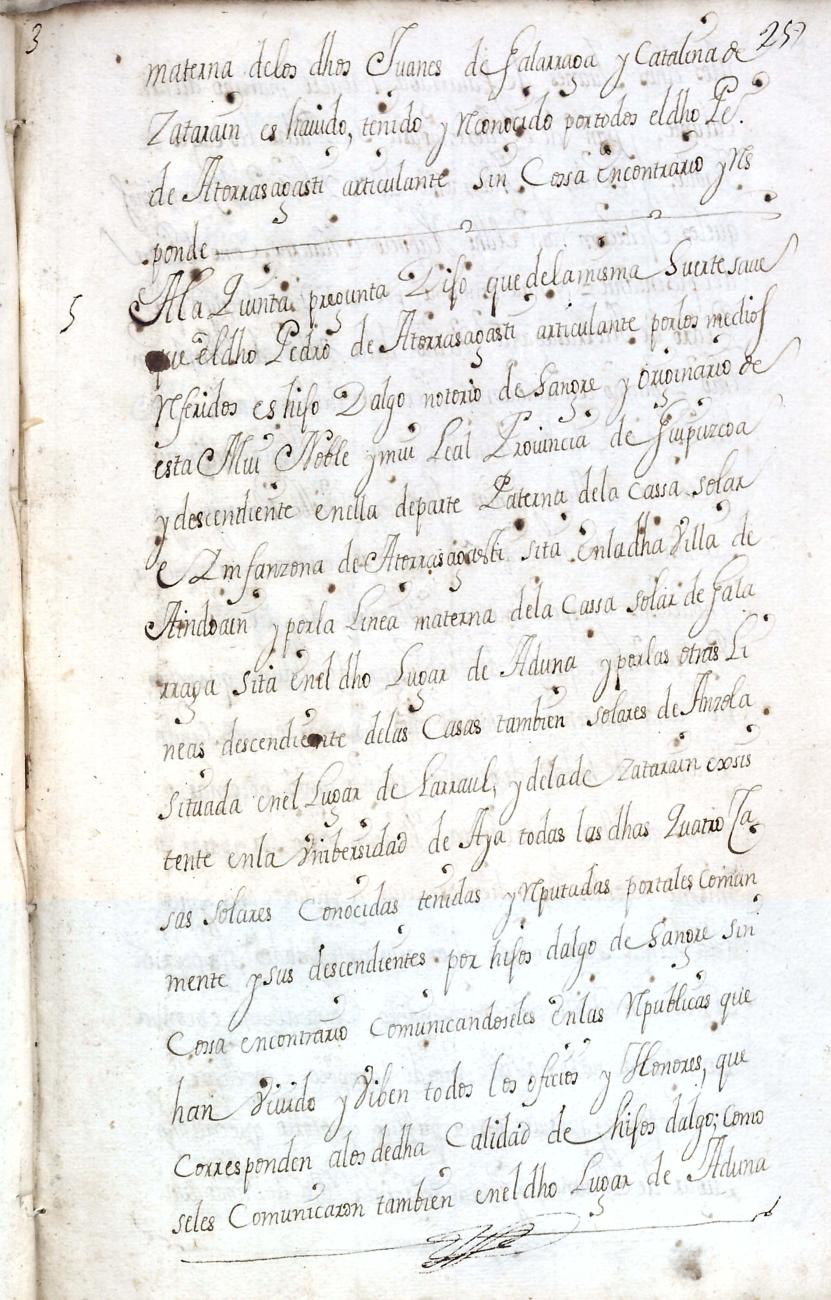 3
25
materna delos dhos Juanes de Galarraga y Catalina de
Zatarain es hauido, tenido y Rconocido portodos eldho Pe.
de Atorrasagasti articulante sin Cossa encontrario y Rs
ponde
5
Ala Quinta pregunta Dijo quedelamisma Suerte saue
que eldho Pedro de Atorrasagasti articulante porlos medios
Rferidos es hijo Dalgo notorio de Sangre y originario de
esta Mui Noble ymui Leal Prouincia de Guipuzcoa
ydescendiente enella departe Paterna dela cassa solar
e Imfanzona de Atorrasagasti sita enladha Villa de
Aindoain yporla Linea materna dela Cassa solar de Gala
rraga sita enel dho Lugar de Aduna yporlas otras Li
neas descendiente delas Casas tambien solares de Anzola
situada enel Lugar de Larraul, ydelade Zatarain exsis
tente enla Vnibersidad de Aya todas las dhas Quatro Ca
sas Solares Conocidas tenidas yRputadas portales Comun
mente ysus descendientes por hijos dalgo de Sangre sin
Cossa encontrario Comunicandoseles enlas Rpublicas que
han Viuido y Viben todos los oficios y Honores, que
Corresponden alos dedha Calidad de hijos dalgo; Como
seles Comunicaron tambien eneldho Lugar de Aduna